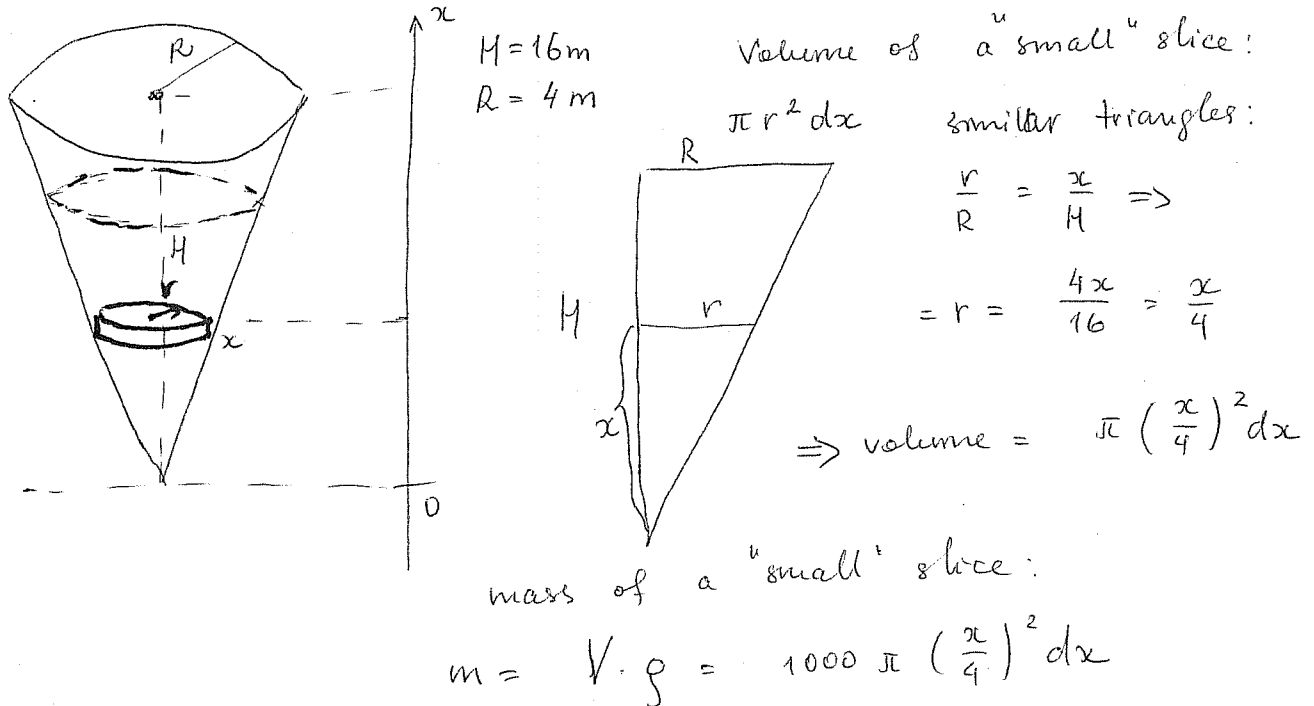 R
x
H = 16m
R = 4 m
H
r
x
0
Volume of a "small" slice:
π r² dx similar triangles:
R
H
r
x
r/R = x/H =>
= r = 4x/16 = x/4
=> volume = π (x/4)² dx
mass of a "small" slice:
m = V · ρ = 1000 π (x/4)² dx